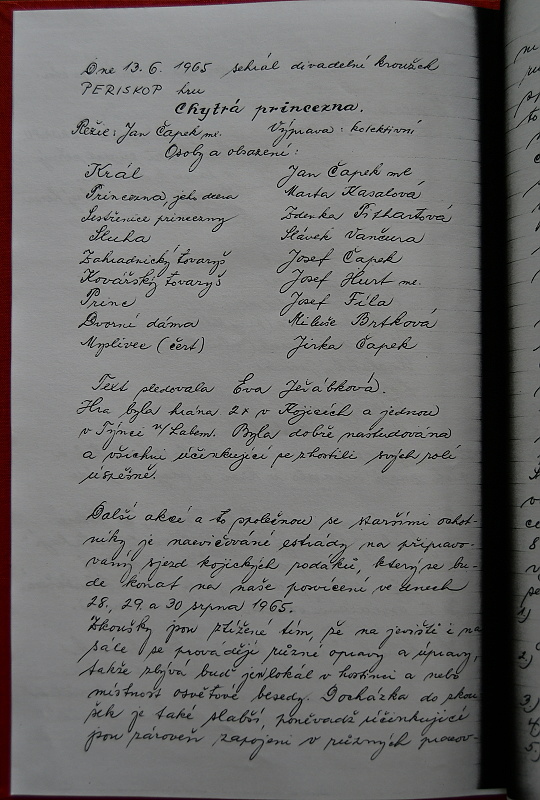 Dne 13. 6. 1965 sehrál divadelní kroužek
PERISKOP hru
Chytrá princezna.
Režie: Jan Čapek ml. Výprava: kolektivní
Osoby a obsazení:
Král Jan Čapek ml
Princezna, jeho dcera Marta Kasalová
Sestřenice princezny Zdenka Pithartová
Sluha Slávek Vančura
Zahradnický tovaryš Josef Čapek
Kovářský tovaryš Josef Hurt ml.
Princ Josef Fila
Dvorní dáma Miluše Brtková
Myslivec (čert) Jirka Čapek
Text sledovala Eva Jeřábková.
Hra byla hrána 2x v Kojicích a jednou
v Týnci n/Labem. Byla dobře nastudována
a všichni účinkující se zhostili svých rolí
úspěšně.
Další akcí a to společnou se staršími ochot-
níky je nacvičování estrády na připravo-
vaný sjezd kojických rodáků, který se bu-
de konat na naše posvícení ve dnech
28., 29. a 30 srpna 1965.
Zkoušky jsou ztížené tím, že na jevišti i na
sále se provádějí různé opravy a úpravy,
takže zbývá buď jen lokál v hostinci a nebo
místnost osvětové besedy. Docházka do zkou
šek je také slabší, poněvadž účinkující
jsou zároveň zapojeni v různých pracov-
2)
3)
4)
5)